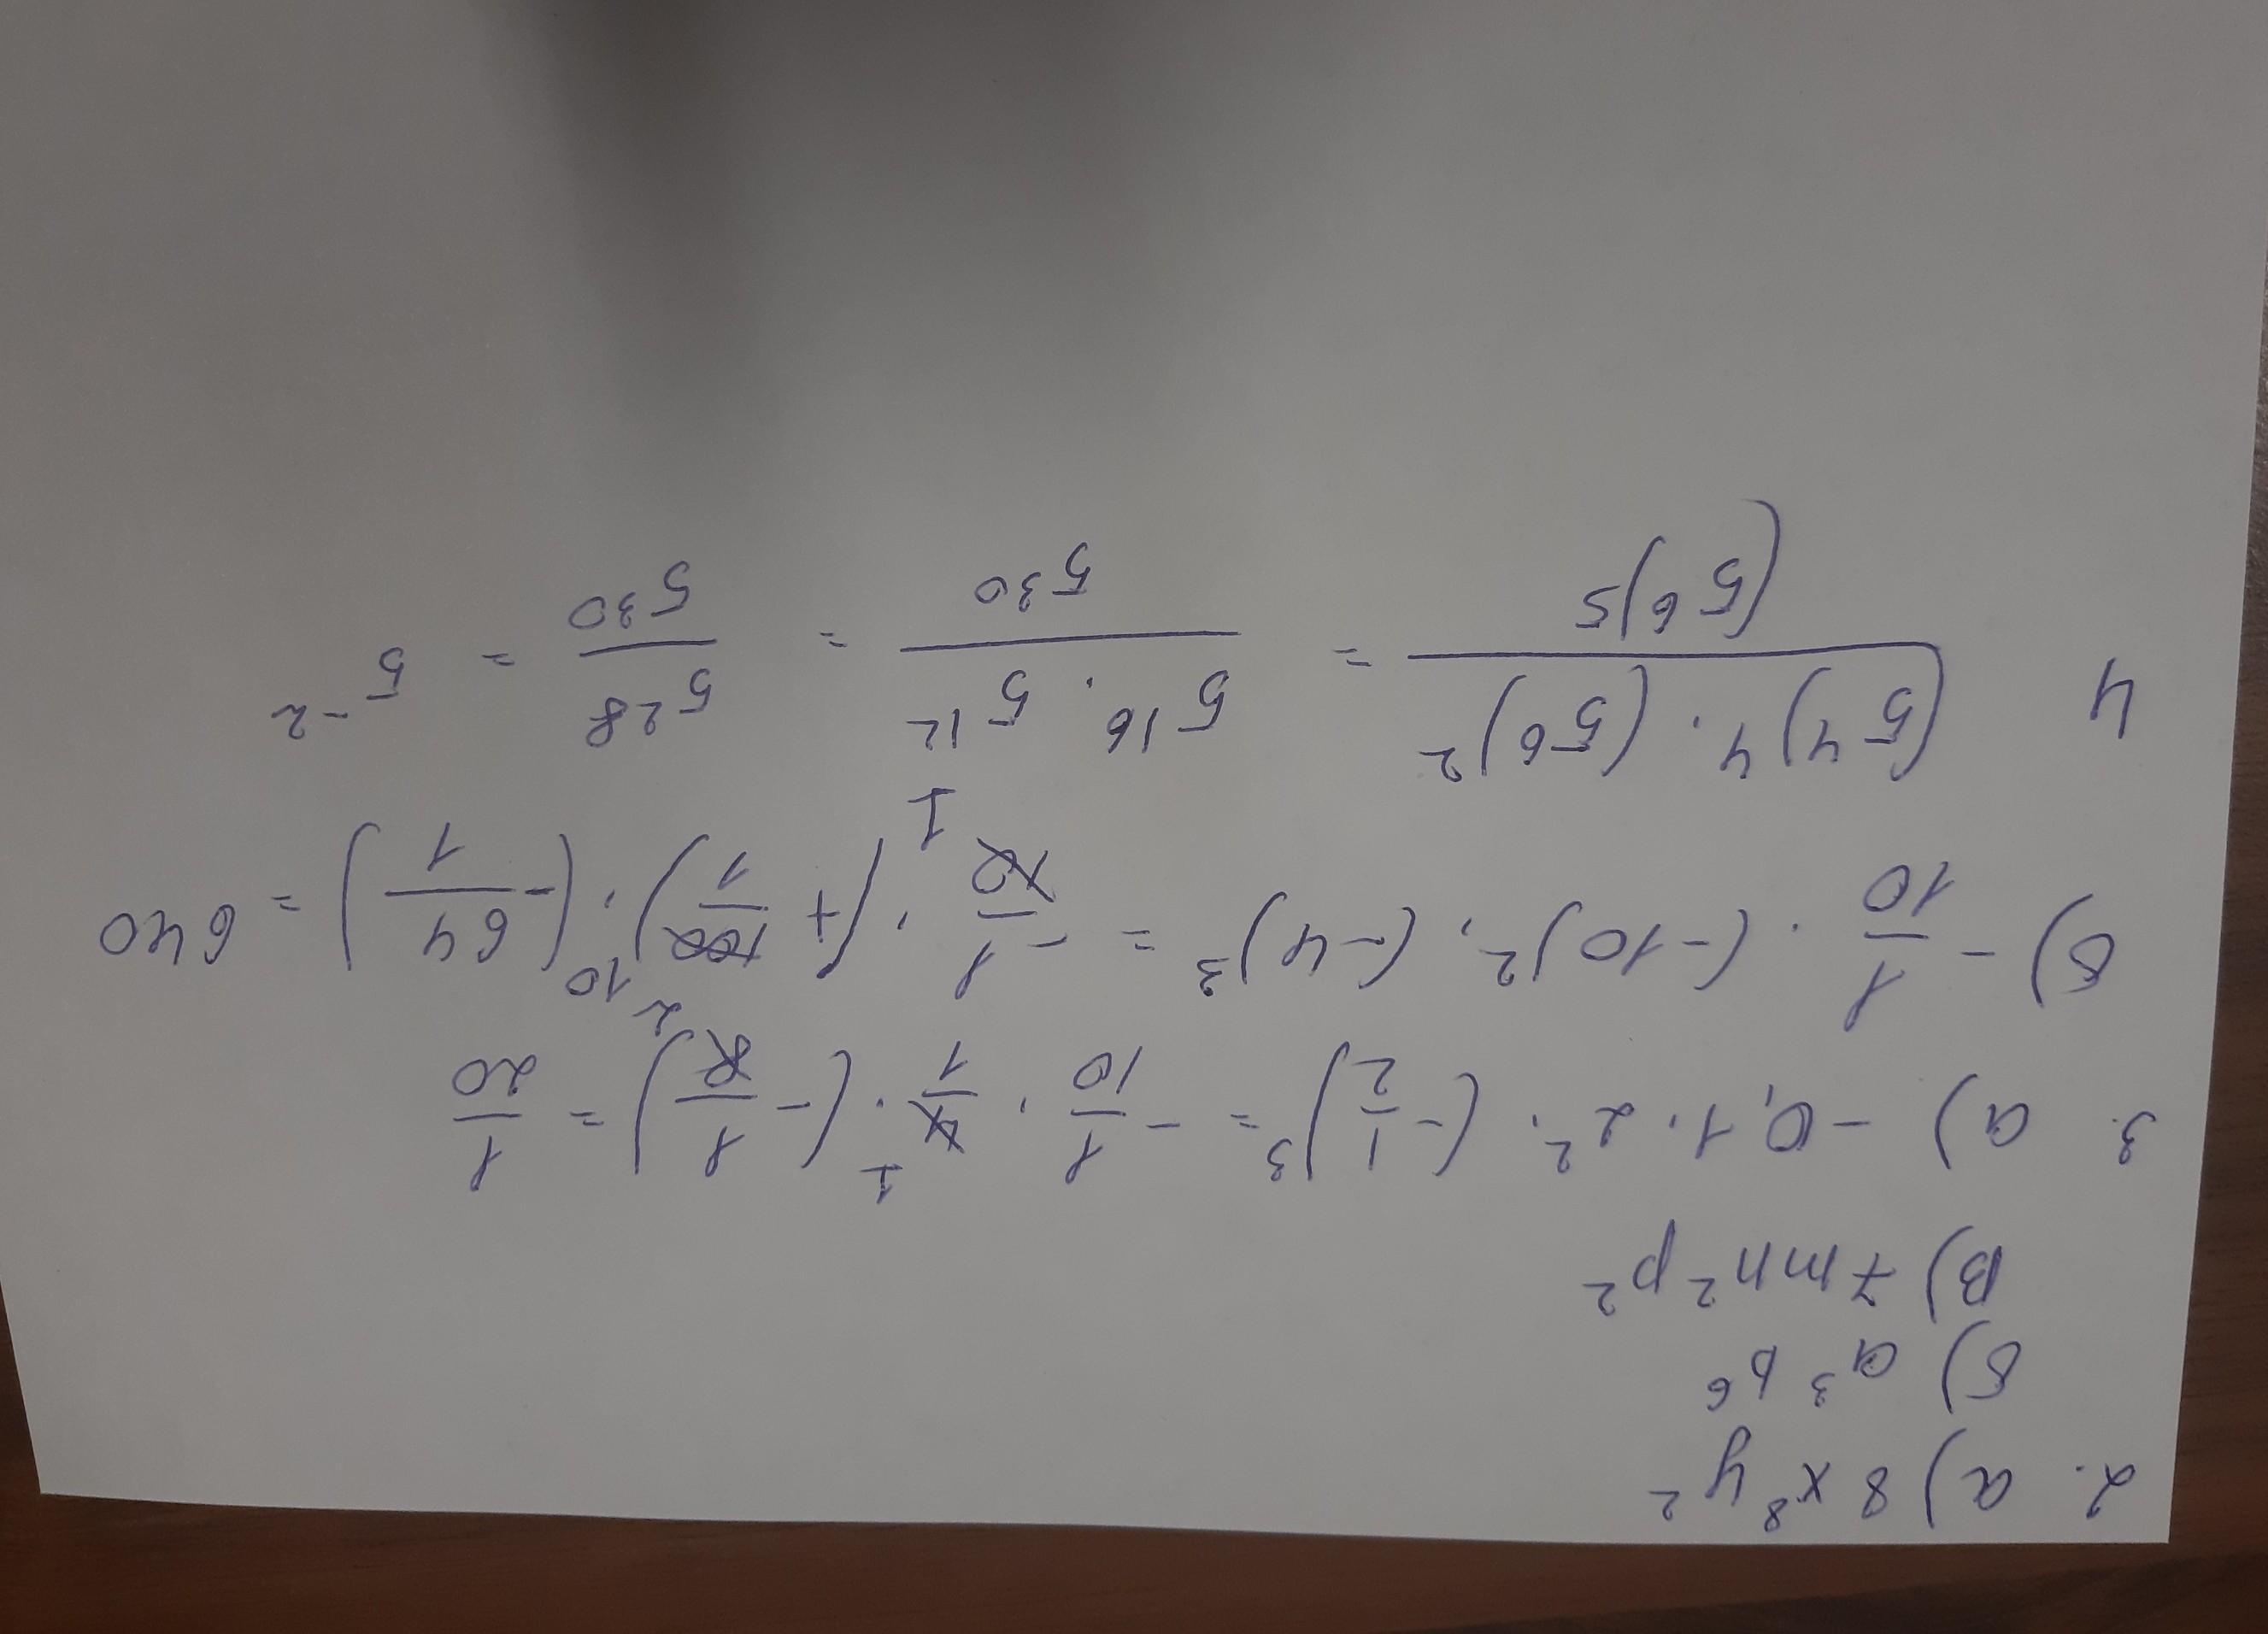 2. а) 8x⁸y²
б) a³b⁶
в) 7mn²p²
3. а) -0,1 · 2² · (-1/2)³ = -1/10 · 4̸¹/1 · (-1/8̸₂) = 1/20
б) -1/10 · (-10)² · (-4)³ = -1/1̸0̸₁ · (+1̸0̸0̸¹⁰/1) · (-64/1) = 640
4 (5⁴)⁴ · (5⁶)² / (5⁶)⁵ = 5¹⁶ · 5¹² / 5³⁰ = 5²⁸ / 5³⁰ = 5⁻²